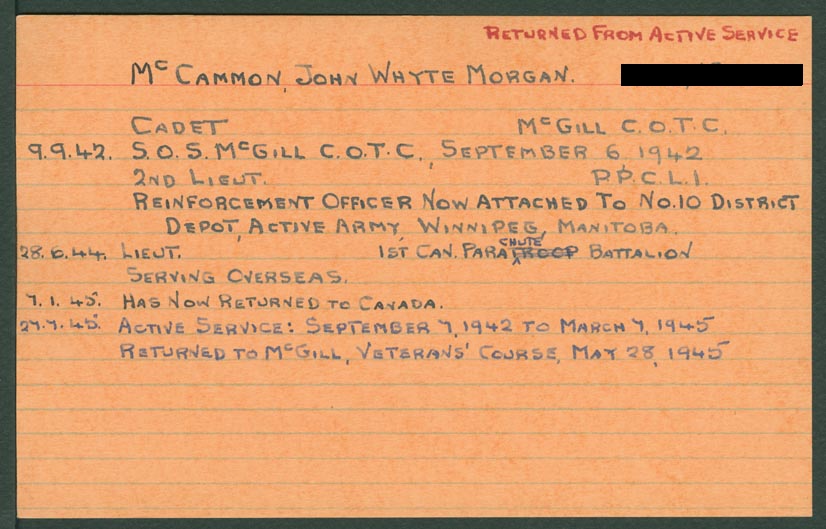 RETURNED FROM ACTIVE SERVICE
McCAMMON, JOHN WHYTE MORGAN.
CADET McGILL C.O.T.C.
9.9.42. S.O.S. McGILL C.O.T.C., SEPTEMBER 6, 1942
2ND LIEUT. P.P.C.L.I.
REINFORCEMENT OFFICER NOW ATTACHED TO NO.10 DISTRICT
DEPOT, ACTIVE ARMY, WINNIPEG, MANITOBA.
28.6.44. LIEUT. 1ST CAN. PARACHUTE BATTALION
SERVING OVERSEAS.
7.1.45. HAS NOW RETURNED TO CANADA.
27.7.45. ACTIVE SERVICE: SEPTEMBER 7, 1942 TO MARCH 7, 1945
RETURNED TO McGILL, VETERANS' COURSE, MAY 28, 1945